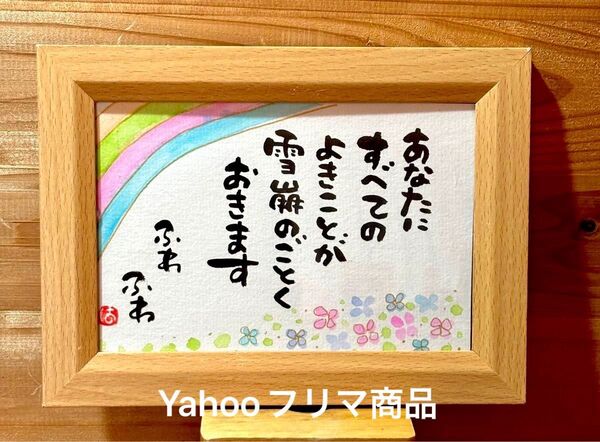 あなたに
すべての
よきことが
雪崩のごとく
おきます
ふわ
ふわ
Yahooフリマ商品